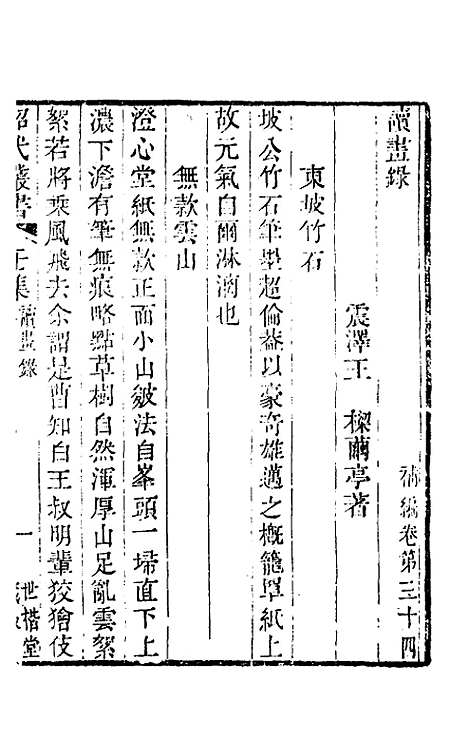 讀畫錄
補編卷第三十四
震澤王樑繭亭著
東坡竹石
坡公竹石筆墨超倫葢以豪奇雄邁之概籠罩紙上
故元氣自爾淋漓也
無款雲山
澄心堂紙無款正面小山皴法自峯頭一埽直下上
濃下澹有筆無痕略點草樹自然渾厚山足亂雲絮
絮若將乘風飛去余謂是曹知白王叔明輩狡獪伎
昭代叢書 壬集讀畫錄 一 世楷堂